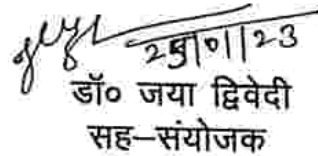 25/01/23
डॉ० जया द्विवेदी
सह-संयोजक